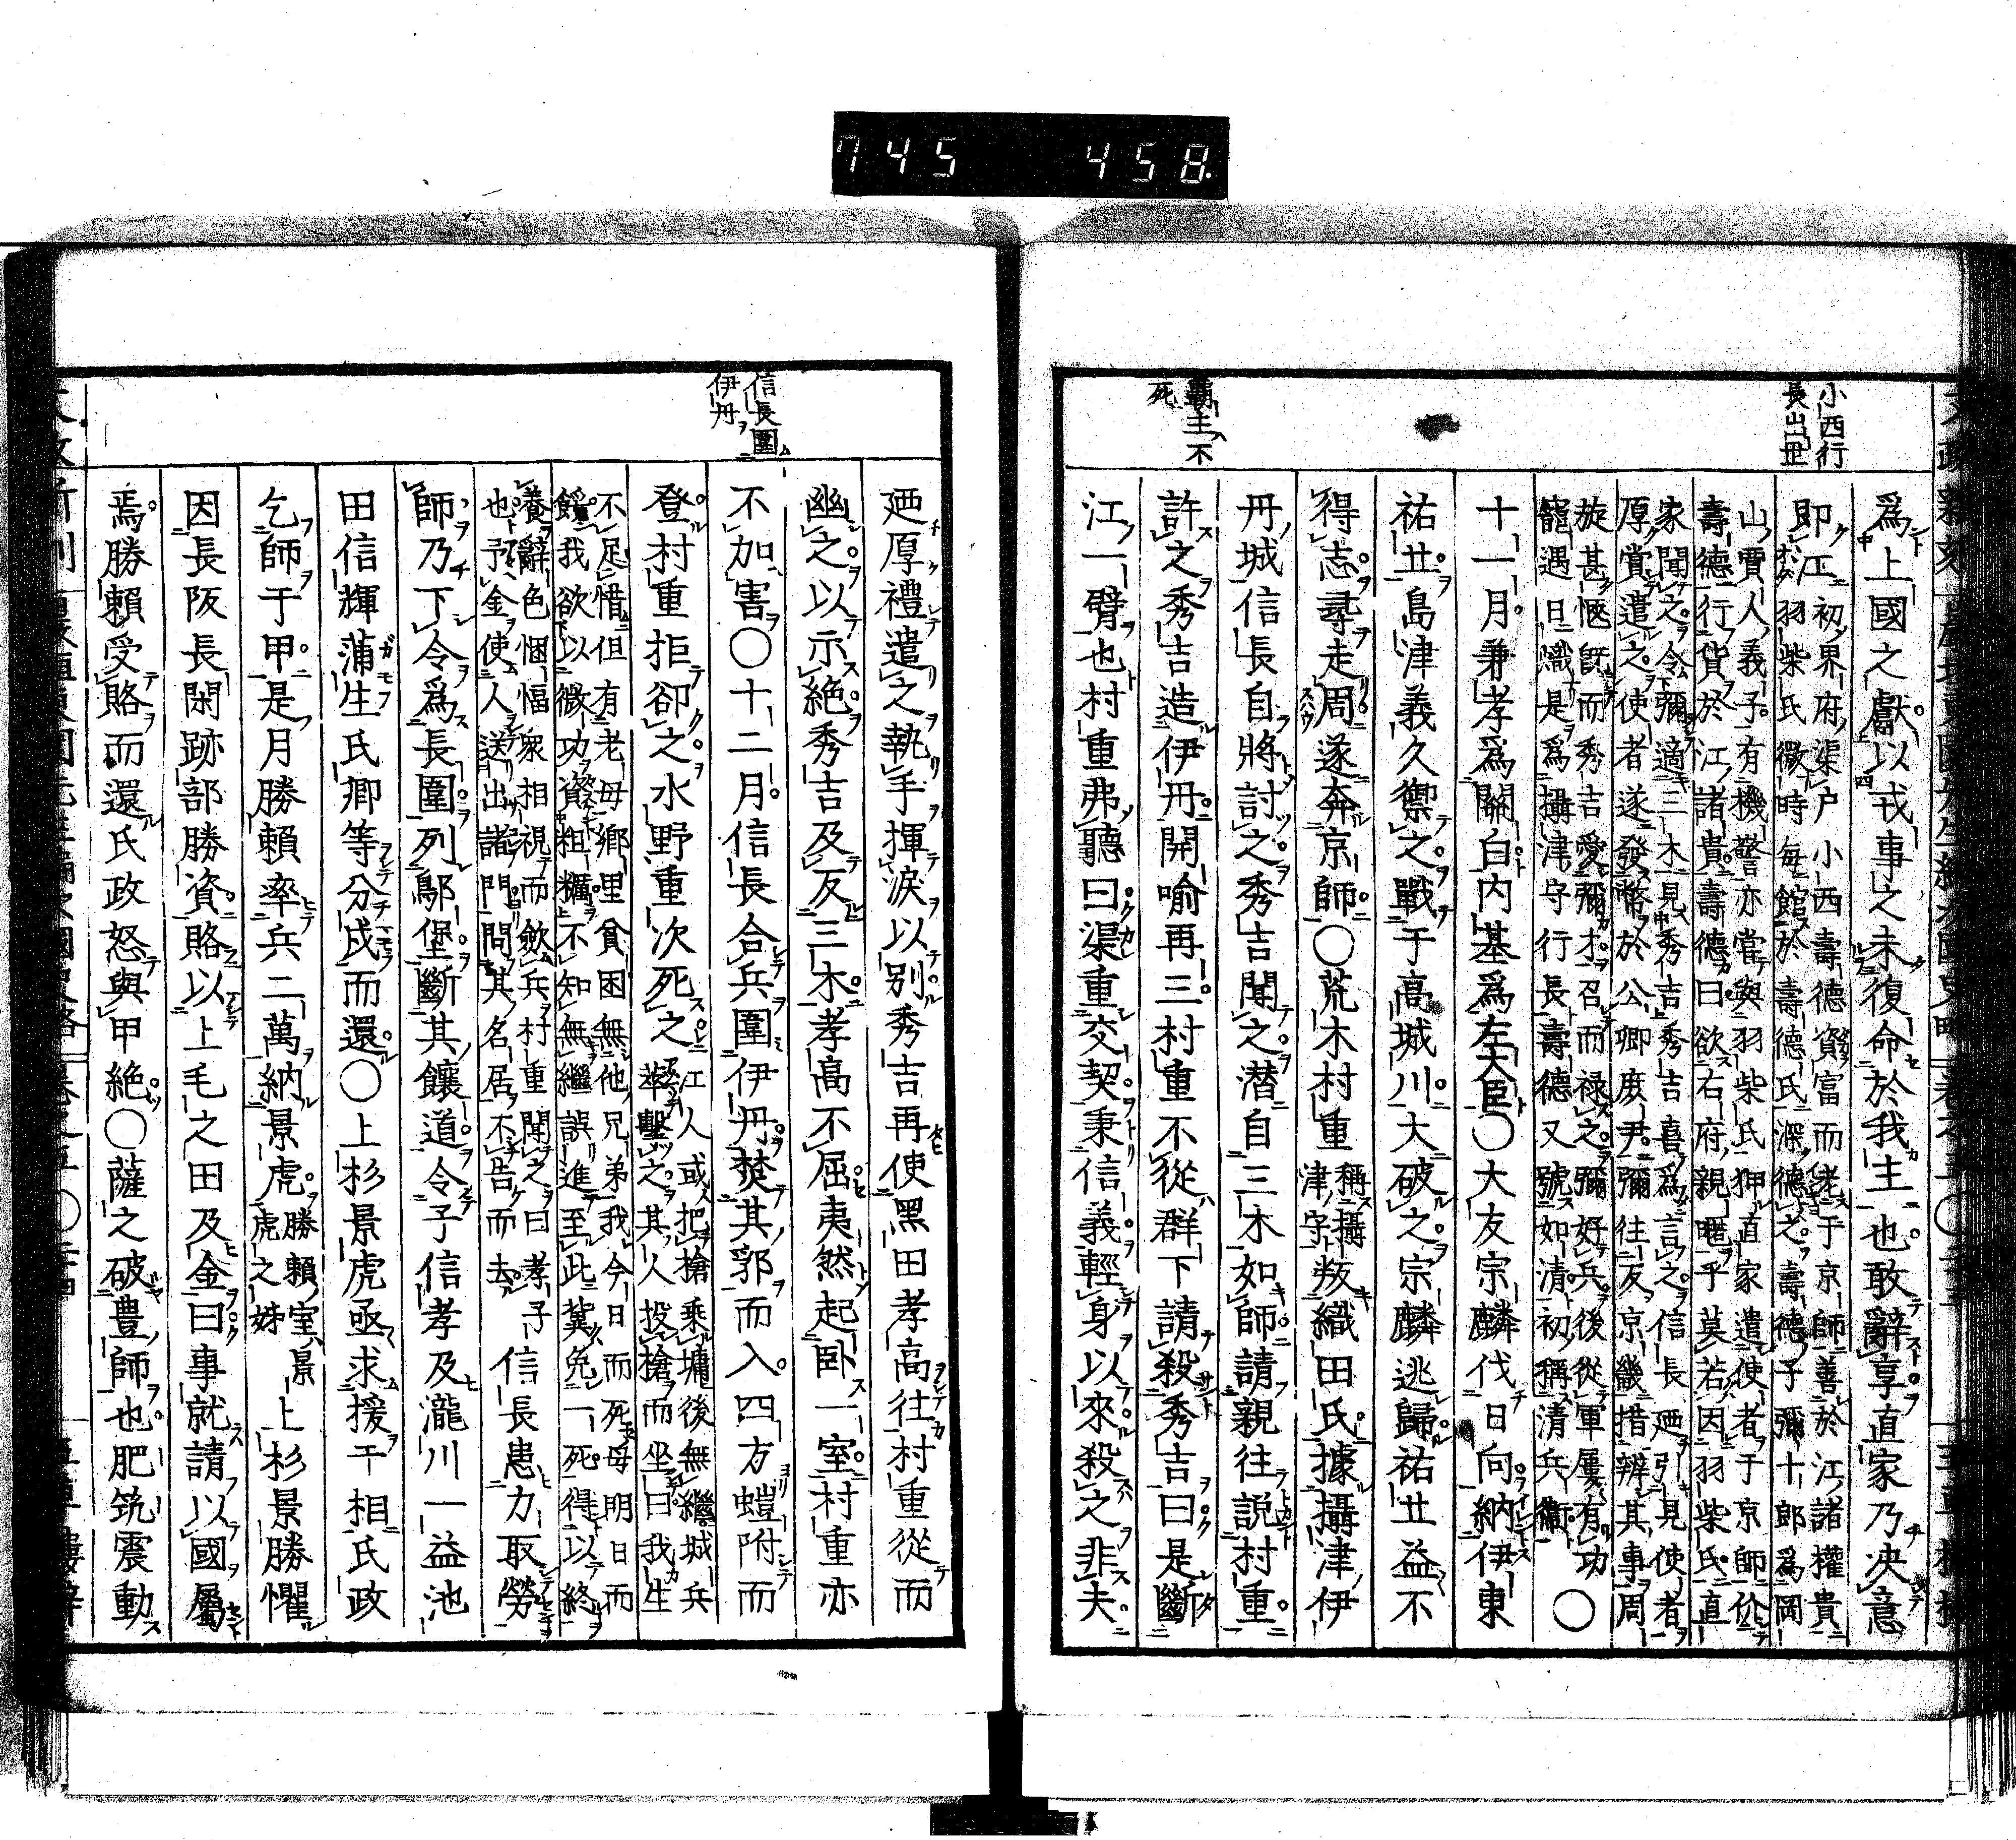 745 458
小西行
長出世
霸主不
死
爲上國之獻以戎事之未復命於我主也敢辭享直家乃決意
即江初界府渠戶小西壽德資富而老于京師善於江諸權貴
羽柴氏微時每館於壽德氏深德之壽德子彌十郎爲岡
山賈人義子有機警亦嘗與羽柴氏狎直家遣使者于京師价
壽德行貨於江諸貴壽德曰欲右府親暱乎莫若因羽柴氏直
家聞之令彌適三木見秀吉秀吉喜爲言之信長廼引見使者
厚賞遣之使者遂發幣於公卿庶尹彌往反京畿措辨其事周
旋甚愜旣而秀吉愛彌才召而祿之彌好兵後從軍屢有功
寵遇日熾是爲攝津守行長壽德又號如清初稱清兵衞 〇
十一月兼孝爲關白內基爲左大臣〇大友宗麟伐日向納伊東
祐丗島津義久禦之戰于高城川大破之宗麟逃歸祐丗益不
得志尋走周遂奔京師〇荒木村重稱攝
津守叛織田氏據攝津伊
丹城信長自將討之秀吉聞之潛自三木如師請親往説村重
許之秀吉造伊丹開喻再三村重不從群下請殺秀吉曰是斷
江一臂也村重弗聽曰渠重交契秉信義輕身以來殺之非夫
信長圍
伊丹
廼厚禮遣之執手揮淚以别秀吉再使黑田孝高往村重從而
幽之以示絶秀吉及反三木孝高不屈夷然起臥一室村重亦
不加害〇十二月信長合兵圍伊丹焚其郭而入四方螘附而
登村重拒卻之水野重次死之江人或把槍乘墉後無繼城兵
萃擊之其人投槍而坐曰我生
不足惜但有老母鄉里貧困無他兄弟我今日而死母明日而
餒我欲以微功資粗糲不知無繼誤進至此冀免一死得以終
養辭色悃愊衆相視而斂兵村重聞之曰孝子
也予金使人送出諸門問其名居不告而去信長患力取勞
師乃下令爲長圍列鄔堡斷其饟道令子信孝及瀧川一益池
田信輝蒲生氏鄉等分戍而還〇上杉景虎亟求援干相氏政
乞師于甲是月勝賴率兵二萬納景虎勝賴室景
虎之姊上杉景勝懼
因長阪長閑跡部勝資賂以上毛之田及金曰事就請以國屬
焉勝賴受賂而還氏政怒與甲絶〇薩之破豊師也肥筑震動